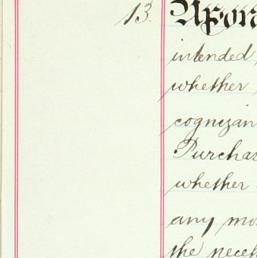 13. Upon
intended
whether
cognizan
Purchas
whether
any mo
the necess